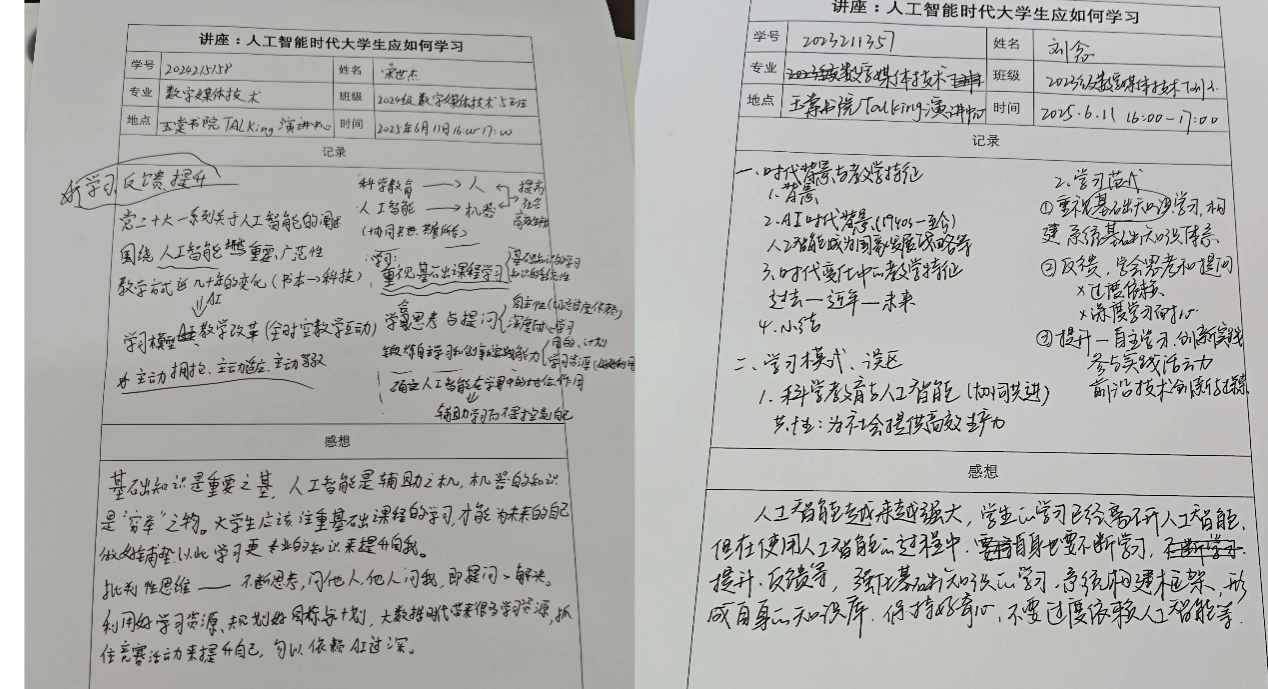 讲座：人工智能时代大学生应如何学习
学号 2024215158 姓名 世杰
专业 数字媒体技术 班级 2024级数字媒体技术 班
地点 玉堂书院TALKing演讲中心 时间 2025年6月11日16:00-17:00
记录
学习,反馈,提升
党二十大一系列关于人工智能的阐述
围绕人工智能 重要,广范性
教学方式近几十年的变化(书本→科技)
AI
学习模型 AI教学改革(全时空教学互动)
主动拥抱、主动适应、主动
科学教育 → 人
人工智能 → 机器
提高
社会
学习:
重视基础课程学习
基础知识的学习
学会思考与提问
自主性(切忌过度依赖)
深度 学习
目的、计划
锻炼自主学习和创新实践能力
学习资源
确定人工智能在学习中的地位作用
辅助学习而不是控制自己
感想
基础知识是重要之基，人工智能是辅助之机，机器的知识
是"穷举"之物。大学生应该注重基础课程的学习,才能为未来的自己
做好铺垫,以此学习更专业的知识来提升自我。
批判性思维——不断思考,问他人,他人问我,即提问、解决。
利用好学习资源、规划好目标与计划,大数据时代带来很多学习资源,抓
住竞赛活动来提升自己,勿以依赖AI过深。
讲座：人工智能时代大学生应如何学习
学号 2023211357 姓名 刘念
专业 数字媒体技术 班级 2023级数字媒体技术
地点 玉堂书院Talking演讲中心 时间 2025.6.11 16:00-17:00
记录
一.时代背景与教学特征
1.背景
2.AI时代背景(1940s-至今)
人工智能成为国家发展战略等
3.时代变化中的教学特征
过去—近年—未来
4.小结
二.学习模式、误区
1.科学教育与人工智能(协同共进)
共性：为社会提供高效生产力
2.学习范式
①重视基础知识学习,构
建系统基础知识体系
②反馈,学会思考和提问
×过度依赖
×深度学习
③提升—自主学习、创新实践
参与实践活动
前沿技术创新与
感想
人工智能越来越强大,学生的学习已经离不开人工智能,
但在使用人工智能的过程中,自身也要不断学习,
提升、反馈等,强化基础知识的学习,系统构建框架,形
成自身的知识库.保持好奇心,不要过度依赖人工智能等.